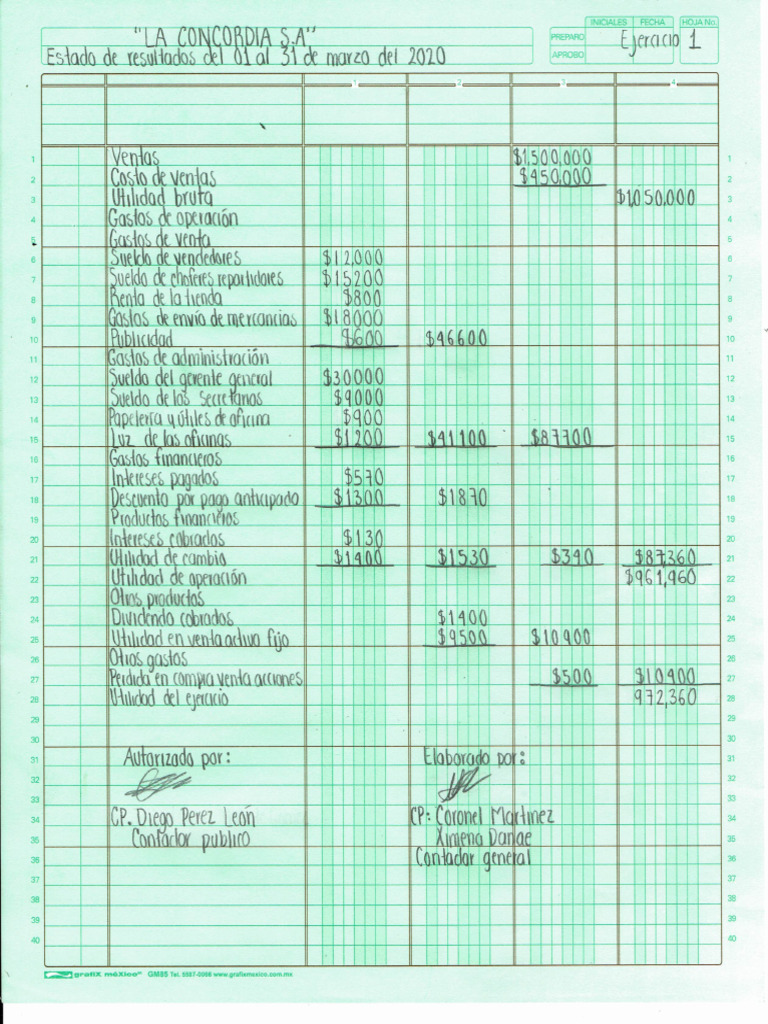 "LA CONCORDIA S.A"
Estado de resultados del 01 al 31 de marzo del 2020
INICIALES FECHA HOJA No.
PREPARO Ejercicio 1
APROBO
1 2 3 4
1 Ventas $1,500,000 1
2 Costo de ventas $450,000 2
3 Utilidad bruta $1,050,000 3
4 Gastos de operación 4
5 Gastos de venta 5
6 Sueldo de vendedores $12,000 6
7 Sueldo de choferes repartidores $15200 7
8 Renta de la tienda $800 8
9 Gastos de envío de mercancias $18000 9
10 Publicidad $600 $46600 10
11 Gastos de administración 11
12 Sueldo del gerente general $30000 12
13 Sueldo de las Secretarias $9000 13
14 Papelería y útiles de oficina $900 14
15 Luz de las oficinas $1200 $41100 $87700 15
16 Gastos financieros 16
17 Intereses pagados $570 17
18 Descuento por pago anticipado $1300 $1870 18
19 Productos financieros 19
20 Intereses cobrados $130 20
21 Utilidad de cambio $1400 $1530 $340 $87,360 21
22 Utilidad de operación $961,960 22
23 Otros productos 23
24 Dividendo cobrados $1400 24
25 Utilidad en venta activo fijo $9500 $10900 25
26 Otros gastos 26
27 Perdida en compra venta acciones $500 $10400 27
28 Utilidad del ejercicio 972,360 28
29 29
30 30
31 Autorizado por: Elaborado por: 31
32 32
33 33
34 CP. Diego Perez León CP: Coronel Martinez 34
35 Contador publico Ximena Danae 35
36 Contador general 36
37 37
38 38
39 39
40 40
grafiX méXico GM85 Tel. 5587-0088 www.grafixmexico.com.mx